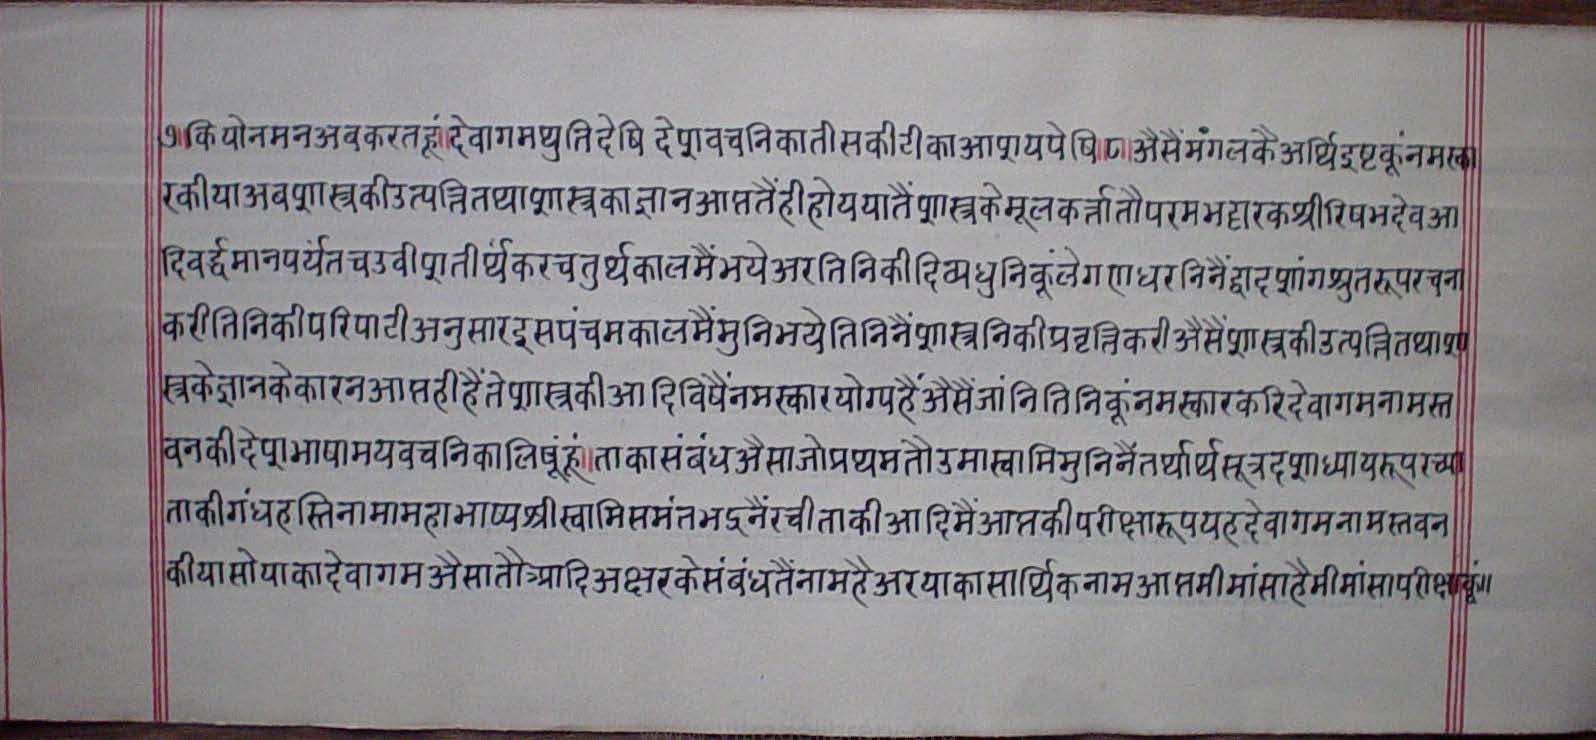 ७॥कियोनमनअबकरतहूं॥देवागमथुतिदेषि देशवचनिकातीसकीटीकाआशयपेषि॥८॥असैंमंगलकैअर्थिइष्टकूंनमस्का
रकीयाअबशास्त्रकीउत्पत्तितथाशास्त्रकाज्ञानआप्ततैंहीहोययातैंशास्त्रकेमूलकर्त्तातौपरमभट्टारकश्रीरिषभदेवआ
दिवर्द्धमानपर्यंतचउवीशतीर्थंकरचतुर्थकालमैंभयेअरतिनिकीदिव्यधुनिकूंलेगणधरनिनैंद्वादशांगश्रुतरूपरचना
करीतिनिकीपरिपाटीअनुसारइसपंचमकालमैंमुनिभयेतिनिनैंशास्त्रनिकीप्रवृत्तिकरीअैसैंशास्त्रकीउत्पत्तितथाशा
स्त्रकेज्ञानकेकारनआप्तहीहैंतेशास्त्रकीआदिविषैंनमस्कारयोग्यहैंअैसैंजांनितिनिकूंनमस्कारकरिदेवागमनामस्त
वनकीदेशभाषामयवचनिकालिषूंहूं॥ताकासंबंधअैसाजोप्रथमतौउमास्वामिमुनिनैंतर्थार्थसूत्रदशाध्यायरूपरच्या
ताकीगंधहस्तिनामामहाभाष्यश्रीस्वामिसमंतभद्रनैंरचीताकीआदिमैंआप्तकीपरीक्षारूपयहदेवागमनामस्तवन
कीयासोयाकादेवागमअैसातौआदिअक्षरकेसंबंधतैंनामहैअरयाकासार्थिकनामआप्तमीमांसाहैमीमांसापरीक्षाकूं॥